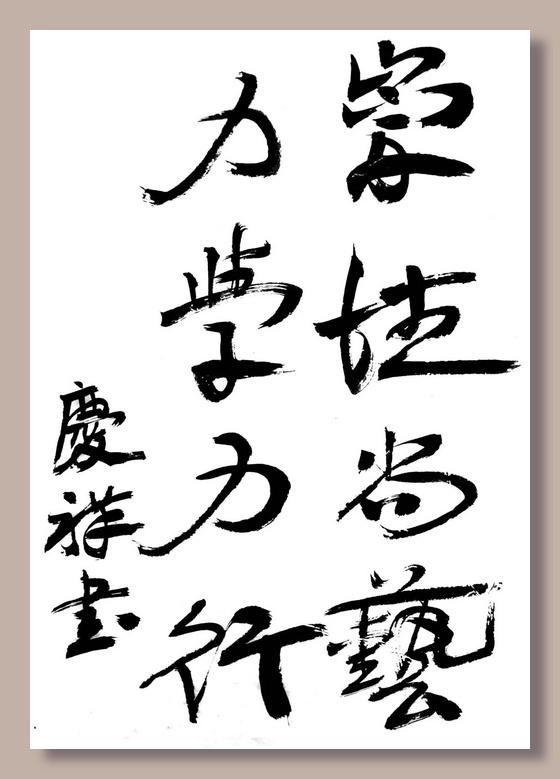 崇德尚藝
力學力行
慶祥書